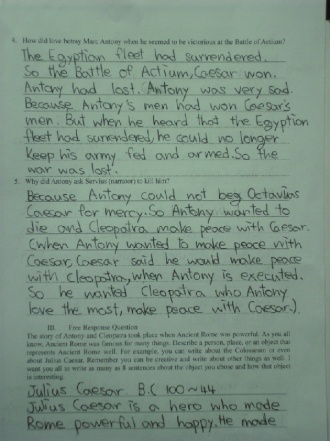 4. How did love betray Marc Antony when he seemed to be victorious at the Battle of Actium?
The Egyptian fleet had surrendered.
So the Battle of Actium, Caesar won.
Antony had lost. Antony was very sad.
Because Antony's men had won Caesar's
men. But when he heard that the Egyptian
fleet had surrendered, he could no longer
Keep his army fed and armed. So the
war was lost.
5. Why did Antony ask Servius (narrator) to kill him?
Because Antony could not beg Octavius
Caesar for mercy. So Antony wanted to
die and Cleopatra make peace with Caesar.
(when Antony wanted to make peace with
Caesar, Caesar said he would make peace
with Cleopatra, when Antony is executed.
So he wanted Cleopatra who Antony
love the most, make peace with Caesar.)
III. Free Response Question
The story of Antony and Cleopatra took place when Ancient Rome was powerful. As you all
know, Ancient Rome was famous for many things. Describe a person, place, or an object that
represents Ancient Rome well. For example, you can write about the Colosseum or even
about Julius Caesar. Remember you can be creative and write about other things as well. I
want you all to write as many as 8 sentences about the object you chose and how that object
is interesting.
Julius Caesar. B.C 100~44
Julius Caesar is a hero who made
Rome powerful and happy. He made